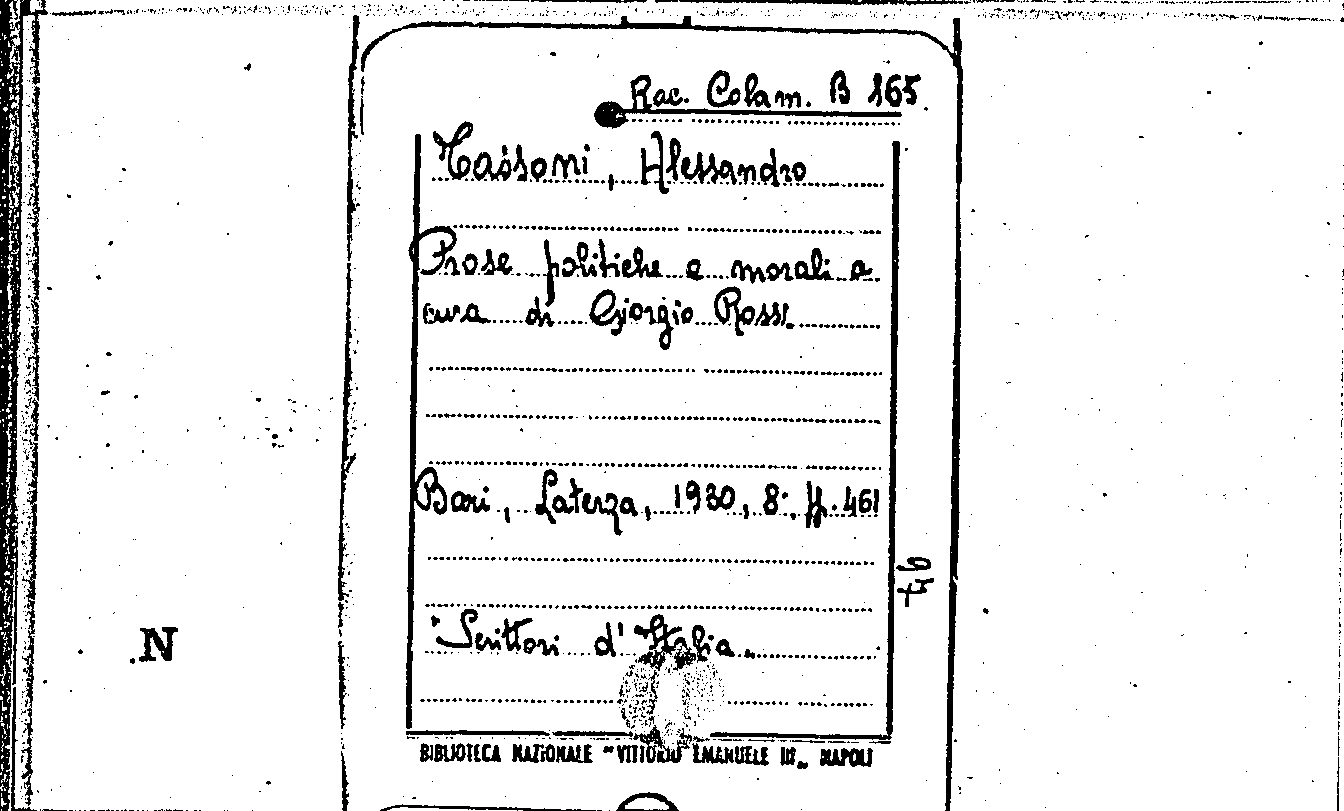 Rac. Colam. B 165
Tassoni, Alessandro
Prose politiche e morali a
cura di Giorgio Rossi.
Bari, Laterza, 1930, 8°, pp. 461
Scrittori d'Italia.
N
BIBLIOTECA NAZIONALE "VITTORIO EMANUELE III" NAPOLI